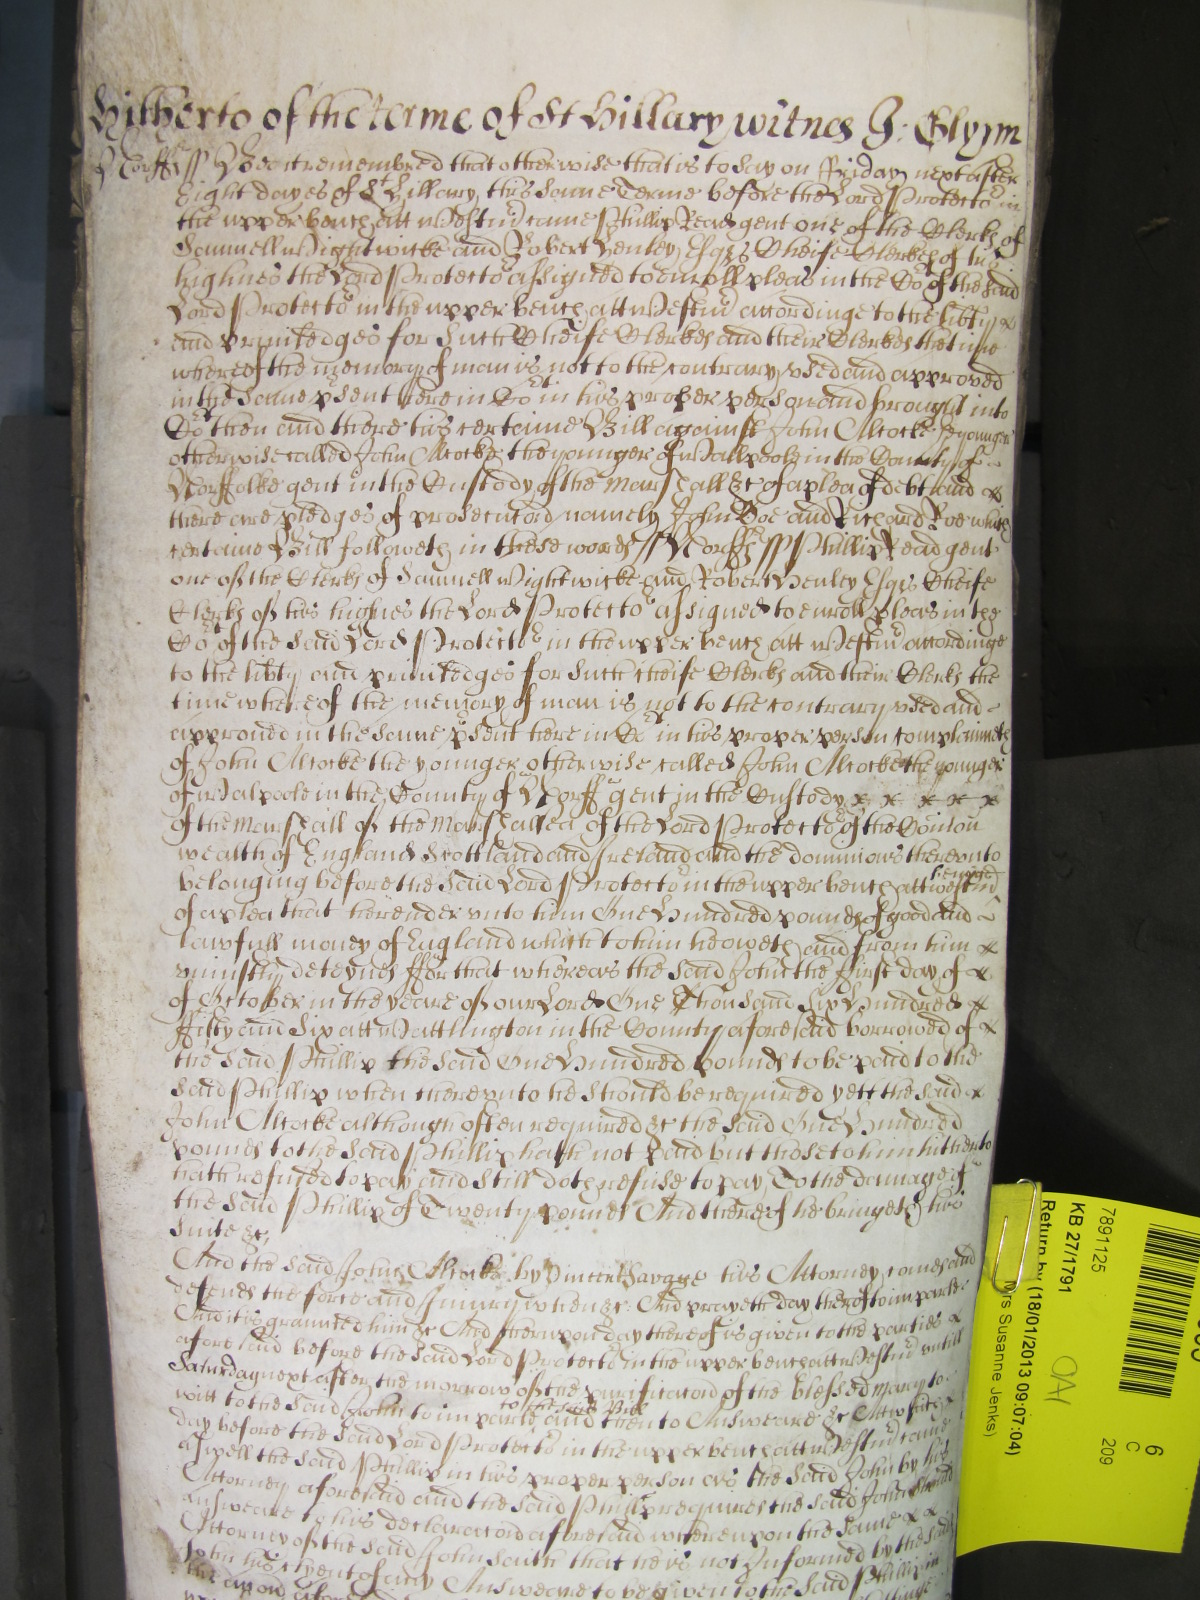 Hitherto of the terme of St Hillary witnes J: Glynn
Norff ss Bee it remembred that otherwise that is to say on Friday next after
Eight dayes of St Hillary this same Terme before the Lord Protector in
the upper bench att Westmr came Phillip Read gent one of the Clerks of
Samuell Wightwicke and Robert Henley Esqrs Cheife Clerkes of his
highnes the Lord Protector assigned to enroll pleas in the Co of the said
Lord Protector in the upper bench att Westmr accordinge to the libty &
and priviledges for such Cheife Clerkes and their Clerkes the time
whereof the memory of man is not to the contrary used and approved
in the same psent here in Co in his proper person and brought into
Co then and there his certaine Bill against John Alcocke the younger
otherwise called John Alcocke the younger of Wallpoole in the County of
Norffolke gent in the Custody of the Marshall &c of a plea of debt and
there are pledges of prosecucion namely John Doe and Richard Roe which
certaine Bill followeth in these words ss Norff ss Phillip Read gent
one of the Clerks of Samuell Wightwicke and Robert Henley Esqrs Cheife
Clerks of his highnes the Lord Protector assigned to enroll pleas in the
Co of the said Lord Protector in the upper bench att Westmr accordinge
to the libty and priviledges for such cheife Clerks and their Clerks the
time whereof the memory of man is not to the contrary used and
approved in the same psent here in Co in his proper person complaineth
of John Alcocke the younger otherwise called John Alcocke the younger
of Walpoole in the County of Norff gent in the Custody x x x x x
of the Marshall of the Marshallsea of the Lord Protector of the Comon
wealth of England Scottland and Ireland and the dominions thereunto
belonging before the said Lord Protector in the upper bench att Westmr
of a plea that he render unto him One Hundred pounds of good and
lawfull money of England which to him he oweth and from him
uniustly deteynes ffor that whereas the said John the first day of
of October in the yeare of our Lord One Thousand Six Hundred
ffifty and Six att Wattlington in the County aforesaid borrowed of
the said Phillip the said One Hundred pounds to be paid to the
said Phillip when thereunto he should be required yett the said
John Alcocke although often required &c the said One Hundred
pounds to the said Phillip hath not paid but those to him hitherto
hath refused to pay and still doth refuse to pay To the damage of
the said Phillip of Twenty pounds And thereof he bringeth his
Suite &c
And the said John Alcocke by Vincent Savage his Attorney comes and
defends the force and Iniury when &c And prayeth day thereof to imparle
And it is graunted him &c And thereupon day thereof is given to the parties
aforesaid before the said Lord Protector in the upper bench att Westmr untill
Saturday next after the morrow of the purificacion of the blessed Mary to
witt to the said John to imparle to the said Bill and then to Answeare &c Att which
day before the said Lord Protector in the upper bench att Westmr came
aswell the said Phillip in his proper person as the said John by his
Attorney aforesaid and the said Phillip requires the said John should
answeare to his declaracion aforesaid whereupon the same
Attorney of the said John saith that he is not Informed by the said
John his Clyent of any Answeare to be given to the said Phillip in
7891125
KB 27/1791
Return by (18/01/2013 09:07:04)
Mrs Susanne Jenks)
6
C
209